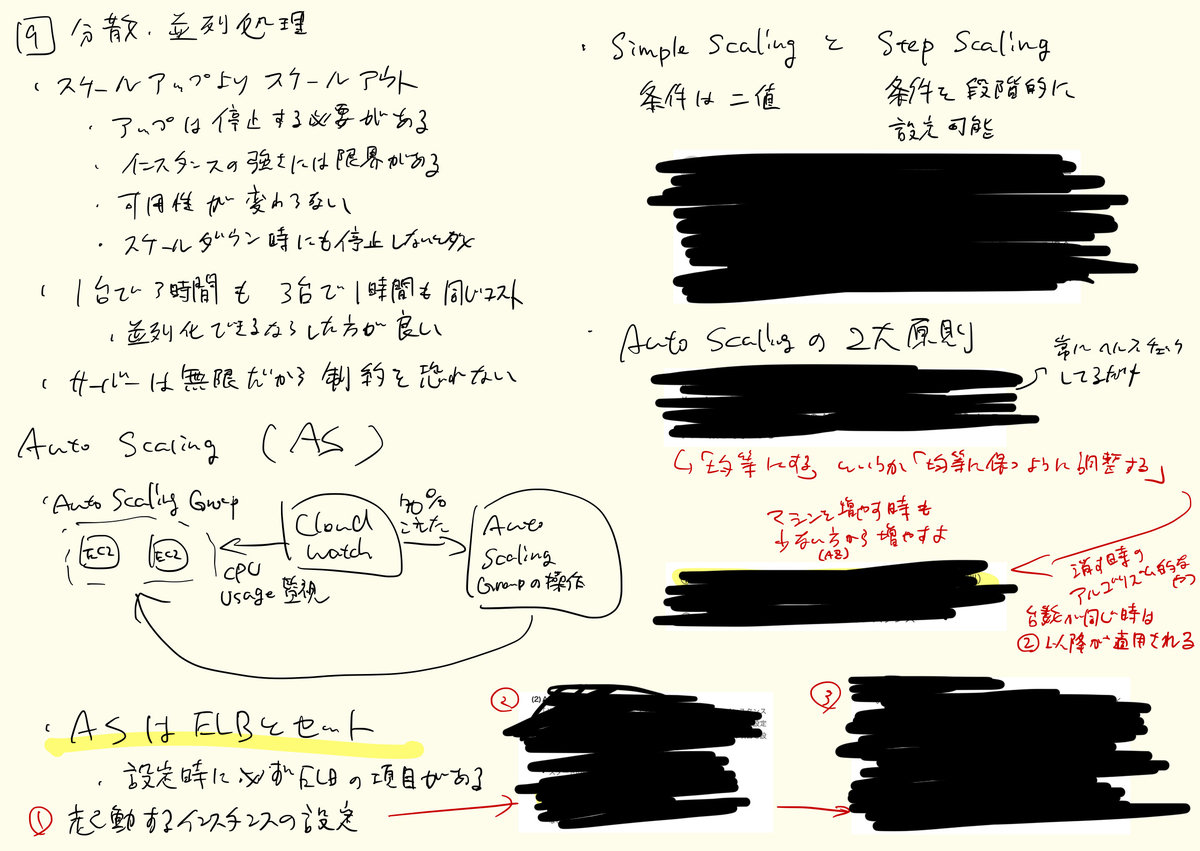 9 分散、並列処理
・スケールアップよりスケールアウト
・アップは停止する必要がある
・インスタンスの強さには限界がある
・可用性が変わらない
・スケールダウン時にも停止しないとダメ
・1台で3時間も 3台で1時間も同じコスト
・並列化できるならした方が良い
・サーバーは無限だから制約を恐れない
Auto Scaling (AS)
・Auto Scaling Group
EC2 EC2
CPU
Usage 監視
Cloud
watch
70%
こえた
Auto
Scaling
Groupの操作
・ASはELBとセット
・設定時に必ずELBの項目がある
① 起動するインスタンスの設定
②
(2)
③
・Simple Scaling と Step Scaling
条件は二値
条件を段階的に
設定可能
・Auto Scalingの2大原則
常にヘルスチェック
してるだけ
↳「均等にする」というか「均等に保つように調整する」
マシンを増やす時も
少ない方から増やすよ
(AZ)
消す時の
アルゴリズム的なやつ
台数が同じ時は
②以降が適用される